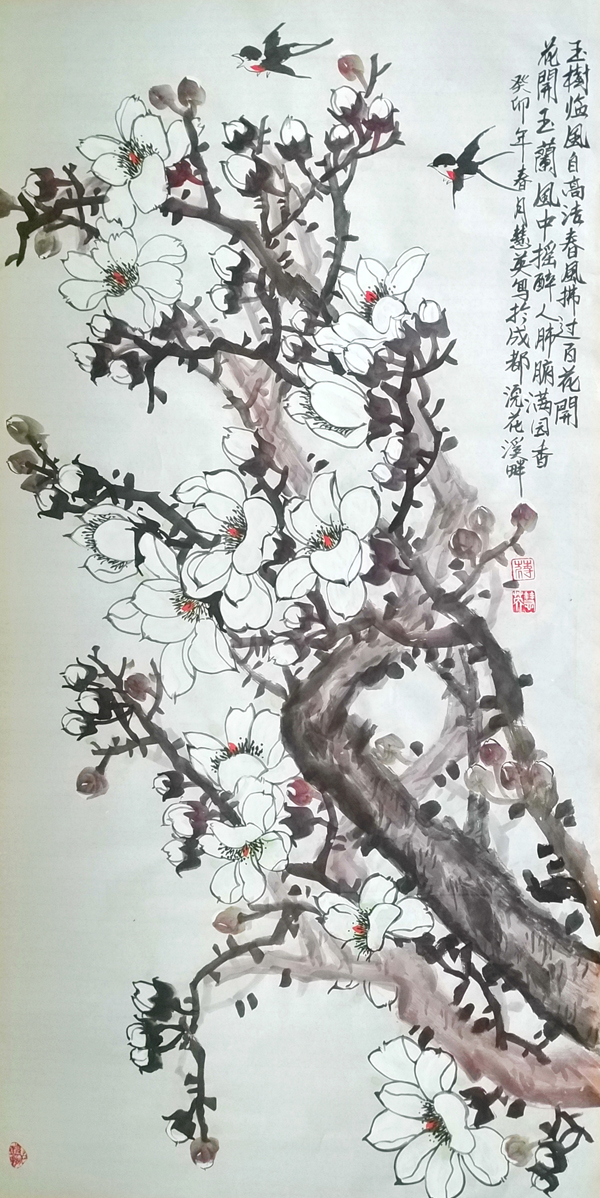 玉樹临風自高洁春風拂过百花開
花開玉蘭風中摇醉人肺腑满园香
癸卯年春月慧英写於成都浣花溪畔